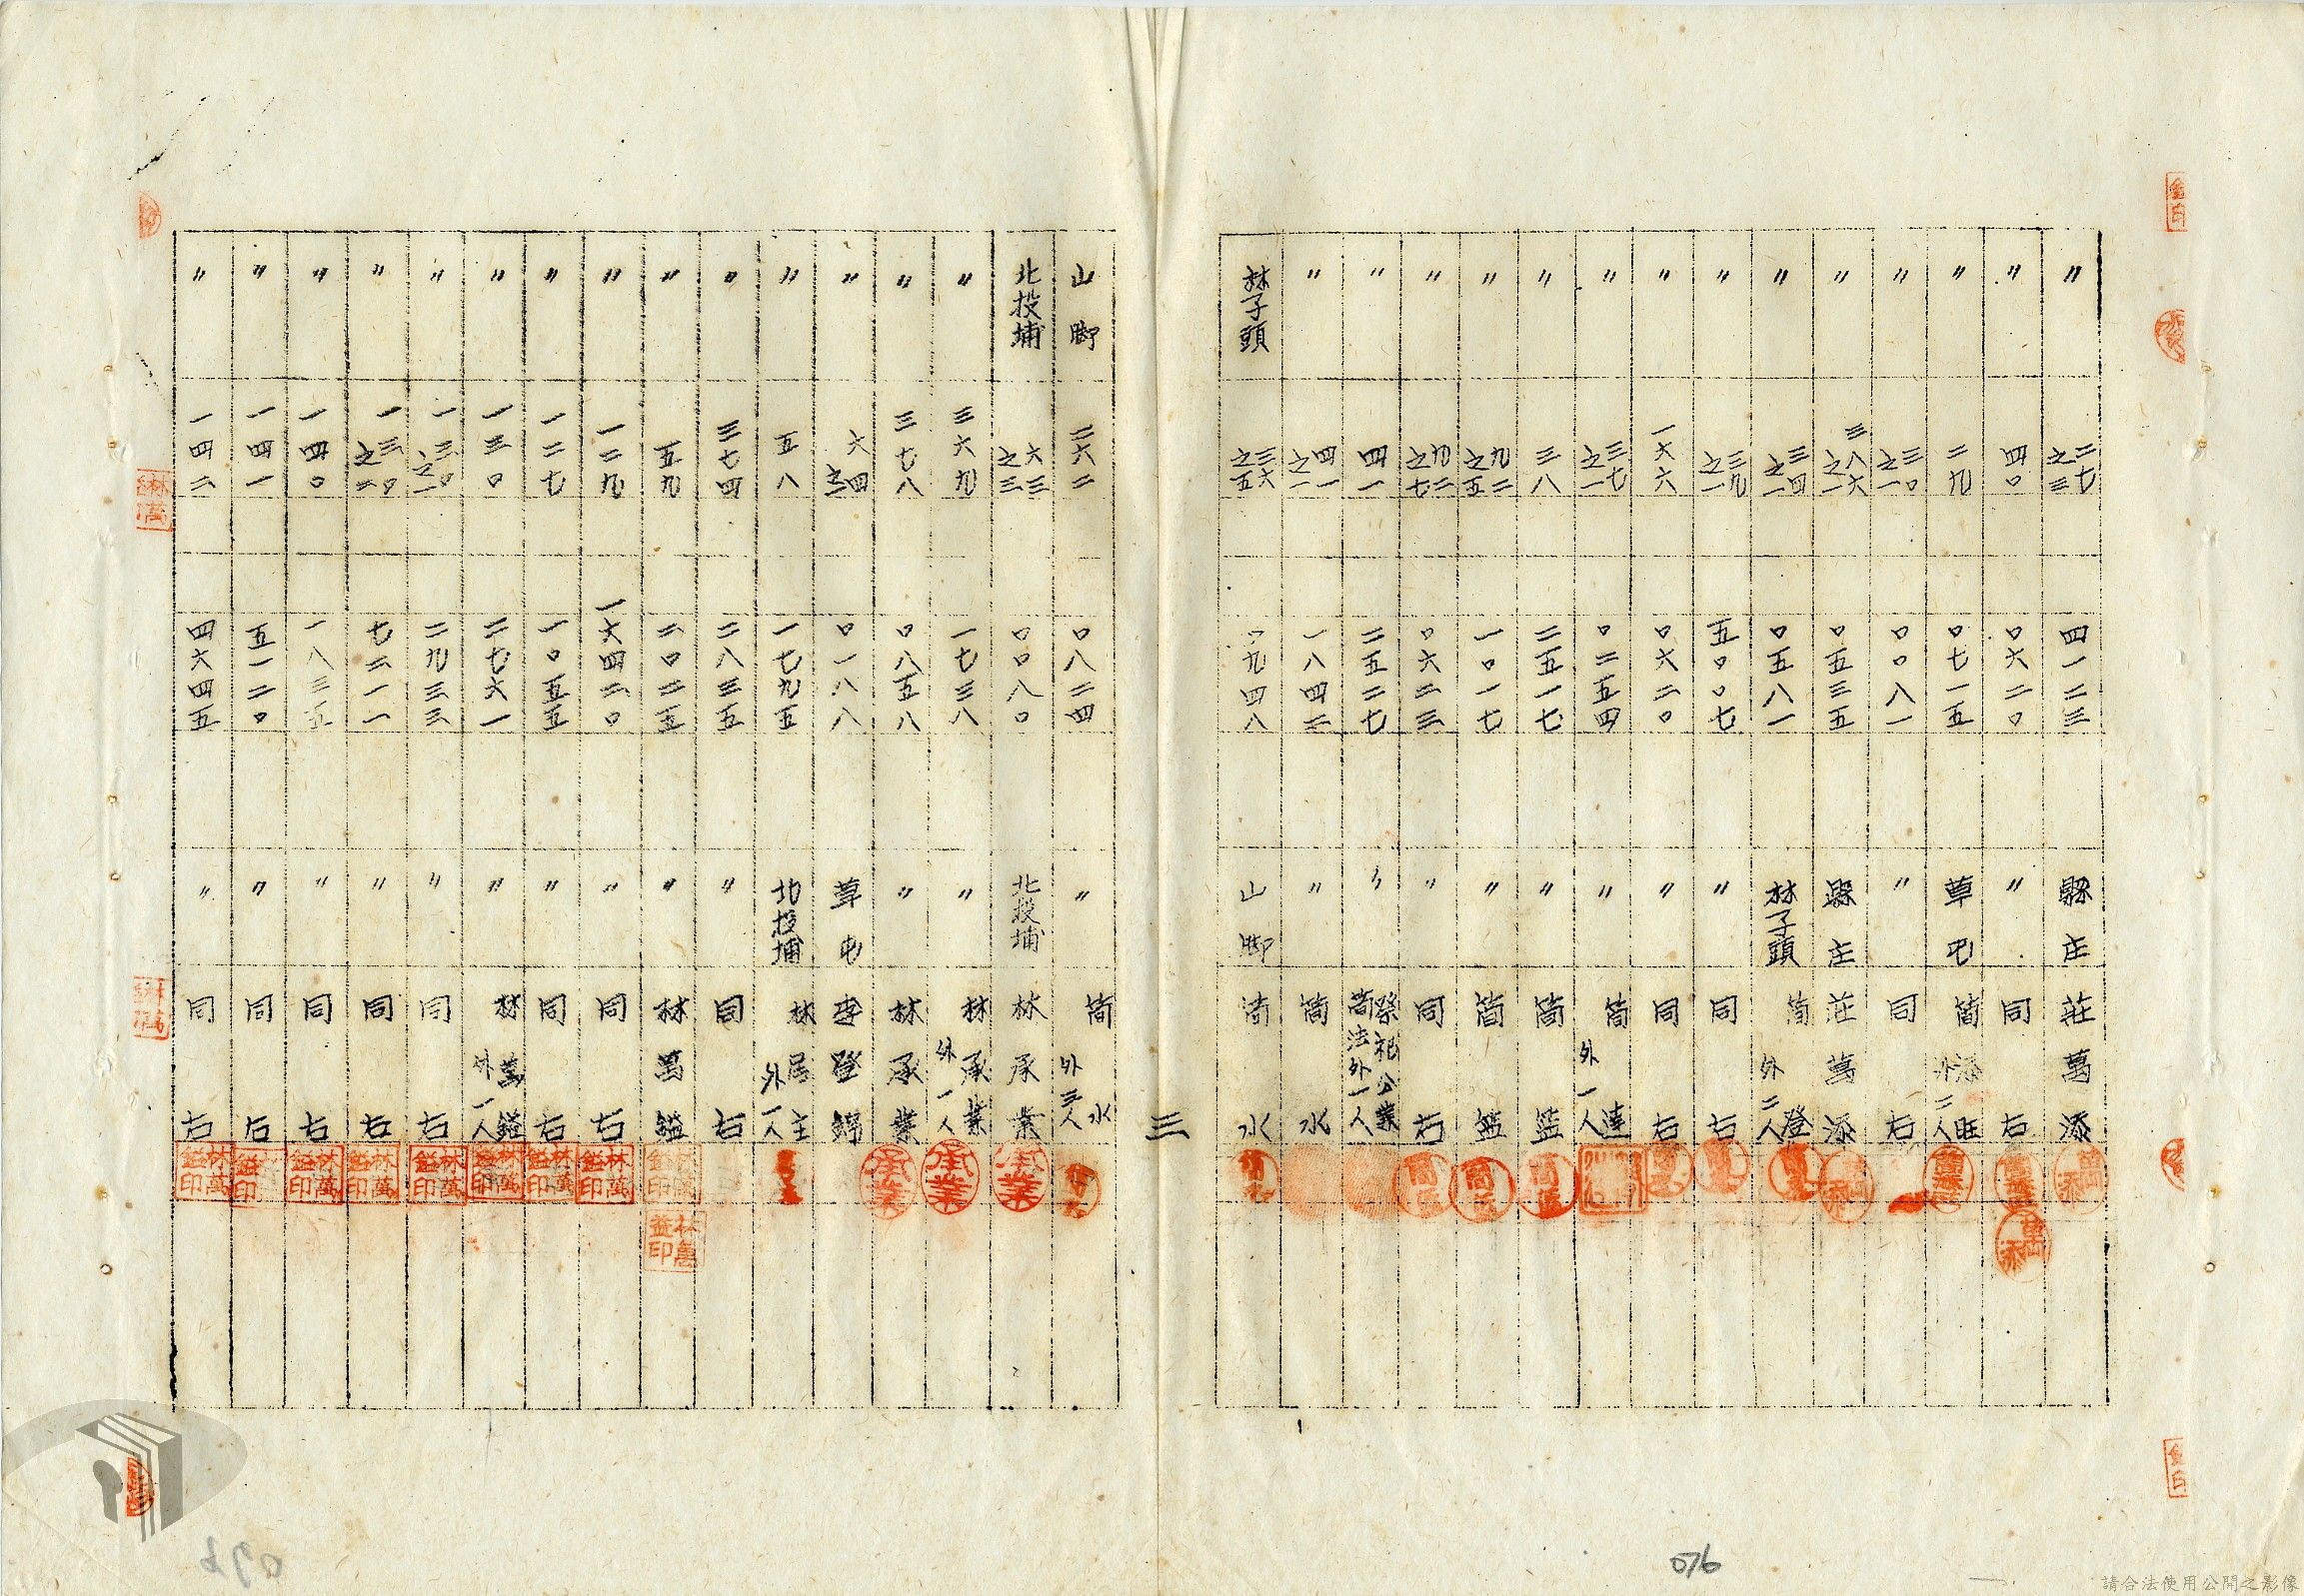 〃 二七之三 四一二三 縣庄 莊萬添
〃 四〇 〇六二〇 〃 同右
〃 二九 〇七一五 草屯 簡添旺外二人
〃 三〇之一 〇〇八一 〃 同右
〃 三八六之一 〇五三五 縣庄 莊萬添
〃 三四之一 〇五八一 林子頭 簡登外二人
〃 三九之一 五〇〇七 〃 同右
〃 一六六 〇六二〇 〃 同右
〃 三七之一 〇二五四 〃 簡達外一人
〃 三八 二五一七 〃 簡籃
〃 九二之五 一〇一七 〃 簡籃
〃 九二之七 〇六二三 〃 同右
〃 四一 二五二七 〃 祭祀公業簡法外一人
〃 四一之一 一八四三 〃 簡水
林子頭 三六之五 一九四八 山腳 簡水
三
山腳 二六二 〇八二四 〃 簡水外三人
北投埔 六三之三 〇〇八〇 北投埔 林承業
〃 三六九 一七三八 〃 林承業外一人
〃 三七八 〇八五八 〃 林承業
〃 六四之二 〇一八八 草屯 李登錦
〃 五八 一七九五 北投埔 林居主外一人
〃 三七四 二八三五 〃 同右
〃 五九 二〇二五 〃 林萬鎰
〃 一二九 一六四二〇 〃 同右
〃 一二七 一〇五五 〃 同右
〃 一三〇 二七六一 〃 林萬鎰外一人
〃 一三〇之一 二九三三 〃 同右
〃 一三〇之二 七二一一 〃 同右
〃 一四〇 一八三五 〃 同右
〃 一四一 五一二〇 〃 同右
〃 一四二 四六四五 〃 同右
承業
承業
承業
林萬鎰印
林萬鎰印
林萬鎰印
林萬鎰印
林萬鎰印
林萬鎰印
林萬鎰印
林萬鎰印
鎰印
林萬鎰印
076
請合法使用公開之影像